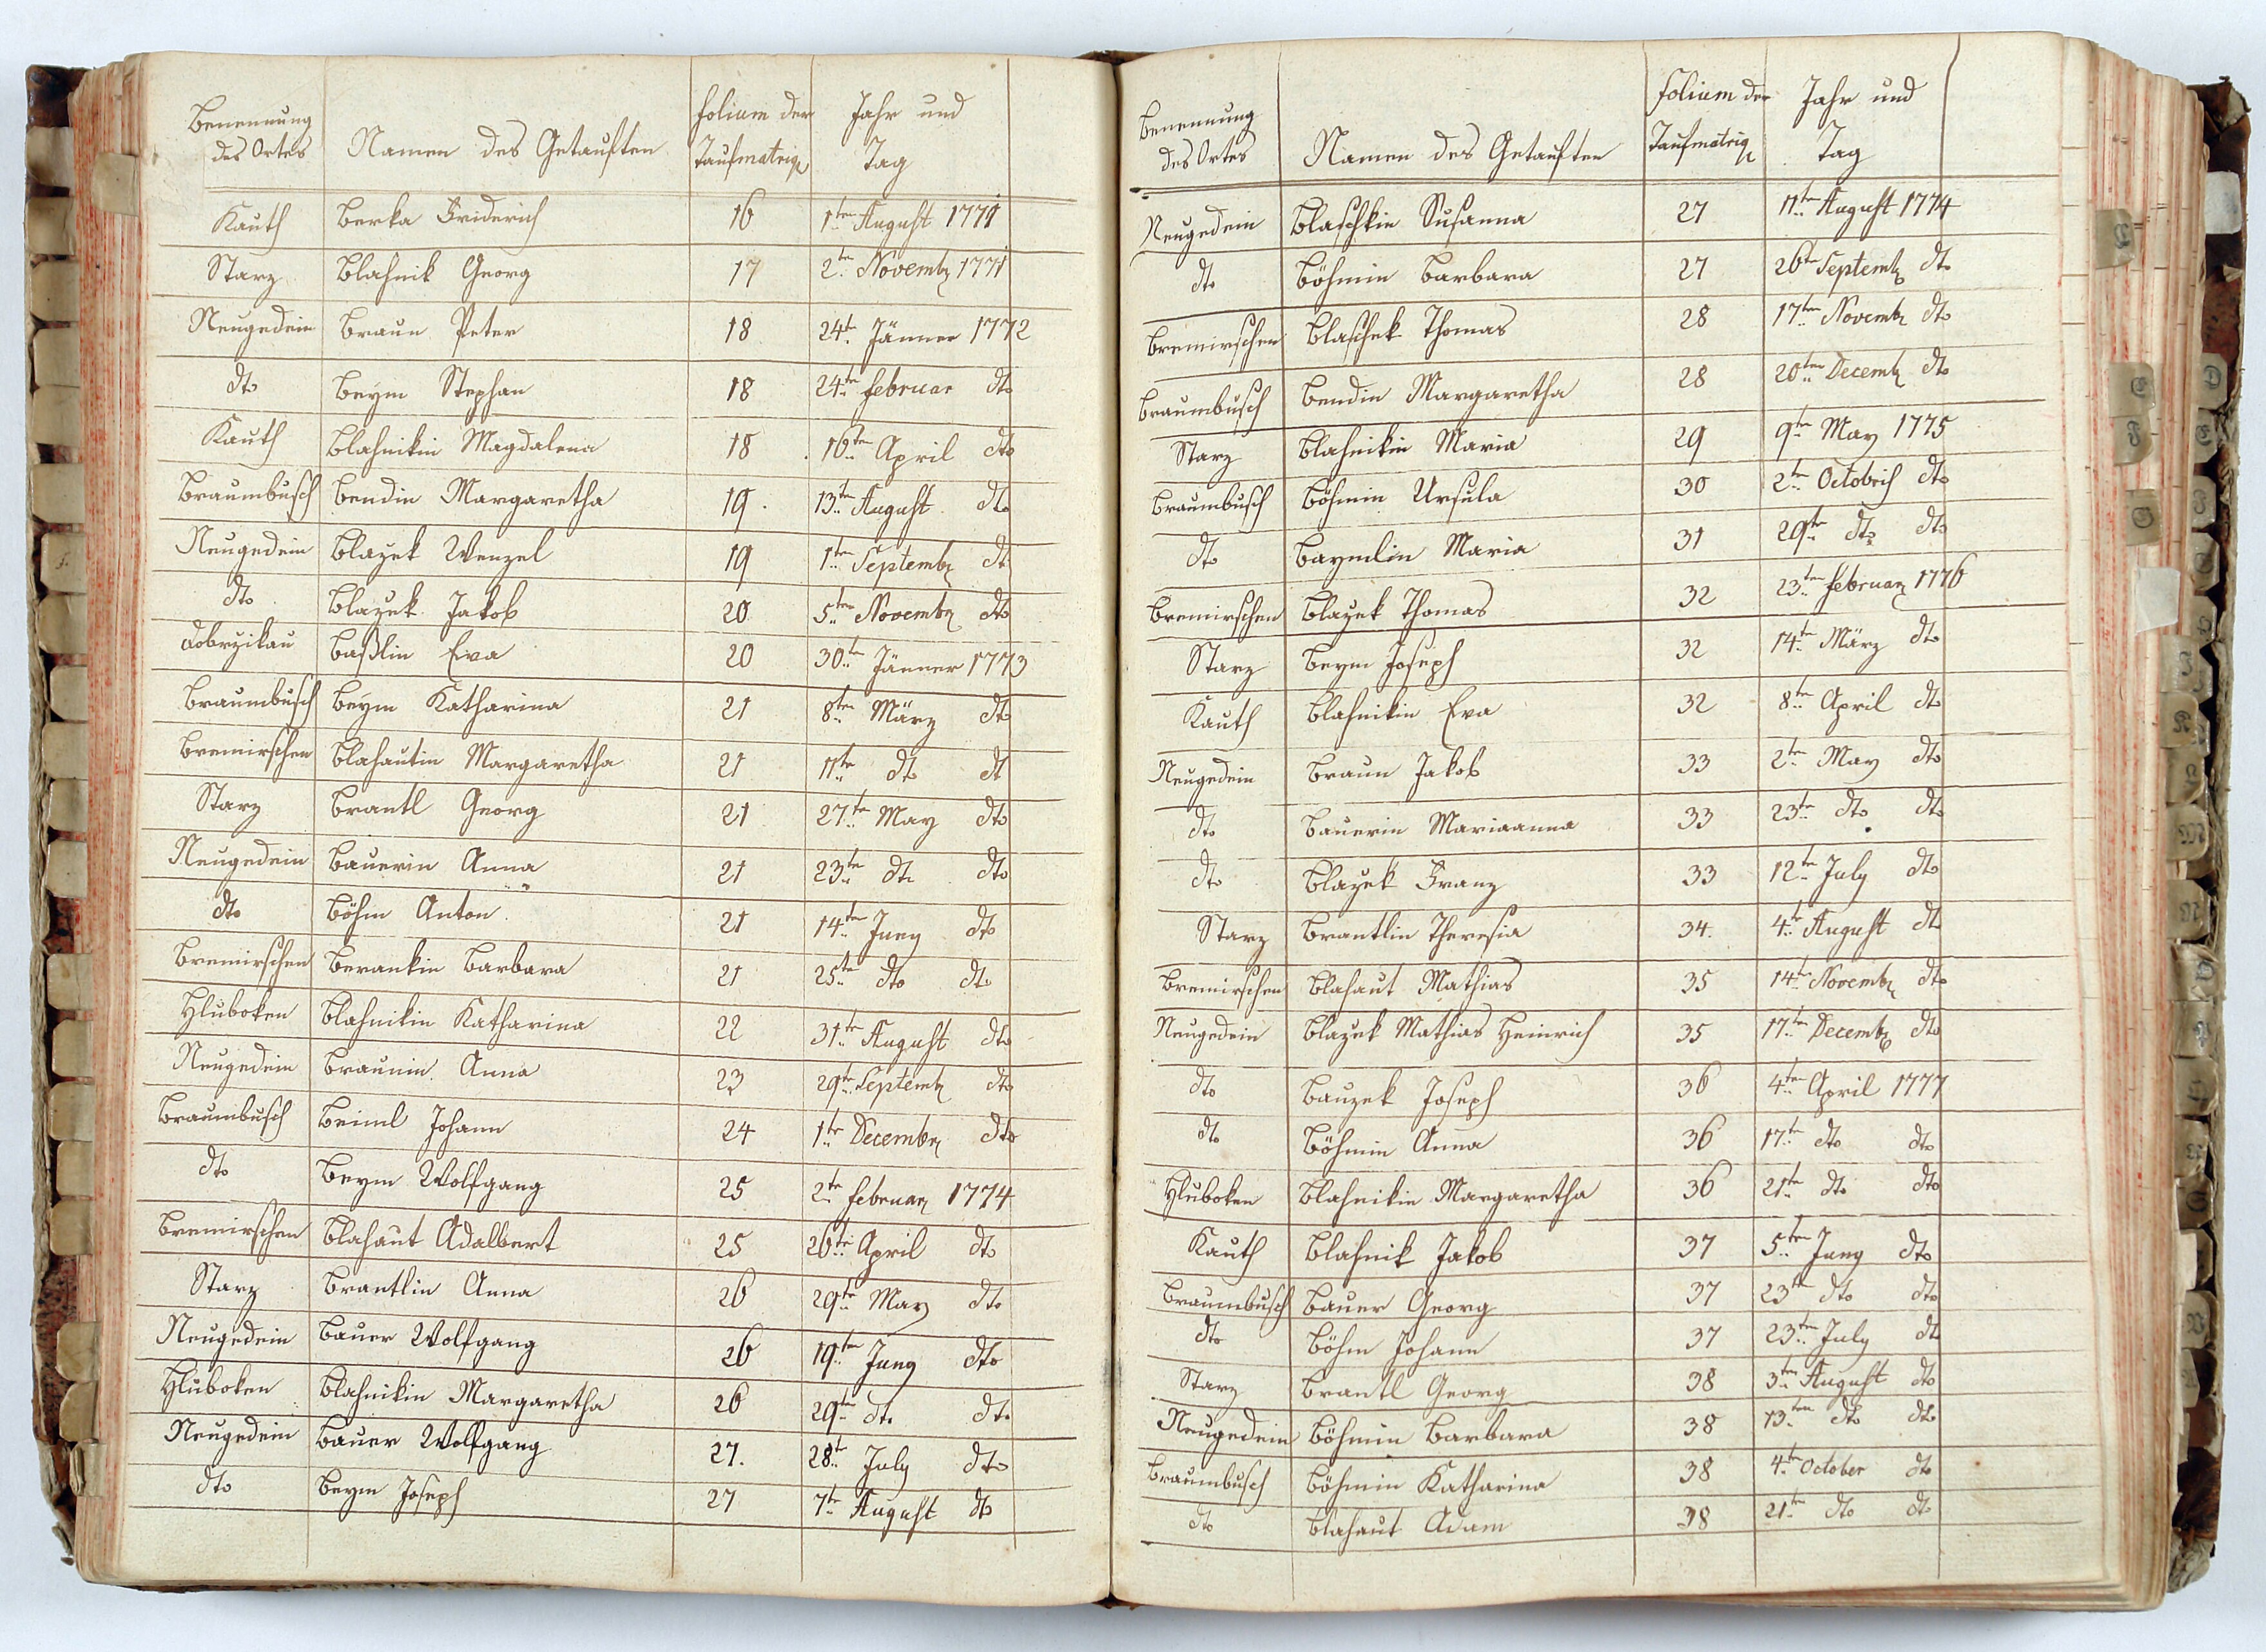 Benennung des Ortes Namen des Getauften Folium der Taufmatriq Jahr und Tag
Kauth Berka Friderich 16 1ten August 1771
Starz Blahnik Georg 17 2ten Novemb 1771
Neugedein Braun Peter 18 24te Jänner 1772
dto Beÿm Stephan 18 24ten Februar dto
Kauth Blahnikin Magdalena 18 10ten April dto
Braumbusch Bendin Margaretha 19. 13ten August dto
Neugedein Blazek Wenzel 19 1ten Septemb dt
dto Blazek Jakob 20 5ten Novemb dto
Dobrzikau Baßlin Eva 20 30ten Jänner 1773
Braumbusch Beÿm Katharina 21 8ten März dto
Bremirschen Blahautin Margaretha 21 11te dto dt
Starz Brantl Georg 21 27te May dto
Neugedein Bauerin Anna 21 23te dto dto
dto Böhm Anton 21 14ten Juny dto
Bremirschen Berankin Barbara 21 25te dto dto
Hluboken Blahnikin Katharina 22 31te August dto
Neugedein Braunin Anna 23 29te Septemb dto
Braumbusch Beiml Johann 24 1te Decemb dto
dto Beym Wolfgang 25 2te Februar 1774
Bremirschen Blahaut Adalbert 25 26te April dto
Starz Brantlin Anna 26 29te May dto
Neugedein Bauer Wolfgang 26 19ten Juny dto
Hluboken Blahnikin Margaretha 26 29ten dto dto
Neugedein Bauer Wolfgang 27. 28te July dto
dto Beym Joseph 27 7te August dto
Benennung des Ortes Namen des Getauften Folium der Taufmatriq Jahr und Tag
Neugedein Blaschkin Susanna 27 11ten August 1774
dto Böhmin Barbara 27 26te Septemb dto
Bremirschen Blaschek Thomas 28 17ten Novemb dto
Braumbusch Bendin Margaretha 28 20ten Decemb dto
Starz Blahnikin Maria 29 9ten May 1775
Braumbusch Böhmin Ursula 30 2ten Octobris dto
dto Baymlin Maria 31 29te dto dto
Bremirschen Blazek Thomas 32 23ten Februar 1776
Starz Beym Joseph 32 14te März dto
Kauth Blahnikin Eva 32 8ten April dto
Neugedein Braun Jakob 33 2te May dto
dto Bauerin Mariaanna 33 23te dto dto
dto Blazek Franz 33 12te July dto
Starz Brantlin Theresia 34. 4te August dto
Bremirschen Blahaut Mathias 35 14te Novemb dto
Neugedein Blazek Mathias Heinrich 35 17ten Decemb dto
dto Bauzek Joseph 36 4ten April 1777
dto Böhmin Anna 36 17te dto dto
Hluboken Blahnikin Margaretha 36 21te dto dto
Kauth Blahnik Jakob 37 5ten Juny dto
Braumbusch Bauer Georg 37 23te dto dto
dto Böhm Johann 37 23ten July dt
Starz Brantl Georg 38 3ten August dto
Neugedein Böhmin Barbara 38 13ten dto dto
Braumbusch Böhmin Katharina 38 4te October dto
dto Blahaut Adam 38 21te dto dto